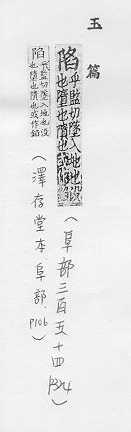 玉篇
陷乎監切墜入地也沒
也墮也隤也
（阜部三百五十四 P324）
陷乎監切墜入地也沒
也墮也隤也或作錎
（澤存堂本阜部. P106）